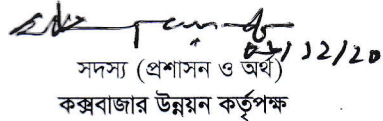 ০২/১২/২০
সদস্য (প্রশাসন ও অর্থ)
কক্সবাজার উন্নয়ন কর্তৃপক্ষ